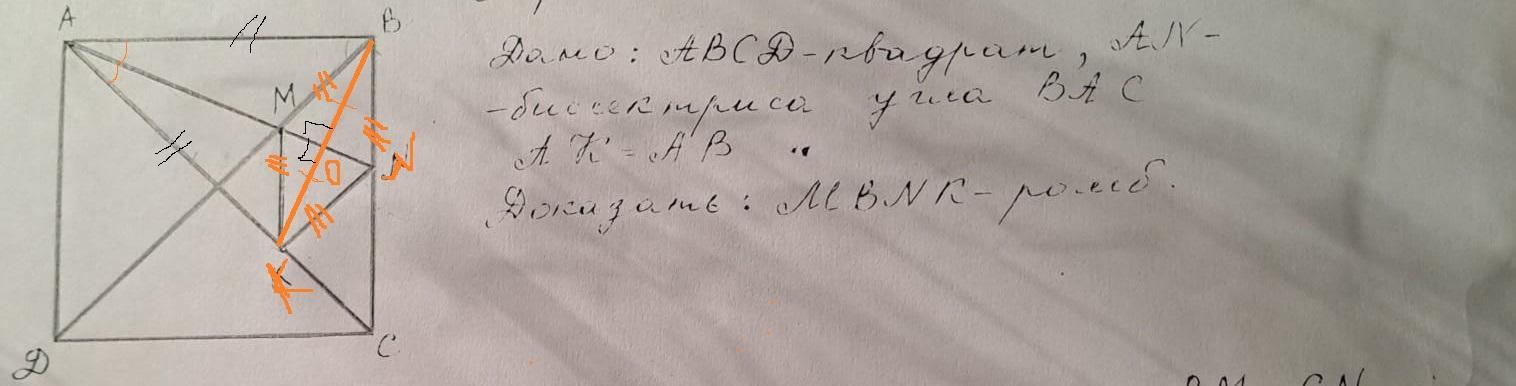 A
B
M
O
N
K
Д
C
Дано: ABCД-квадрат, AN-
-биссектриса угла BAC
AK=AB
Доказать: MBNK-ромб.